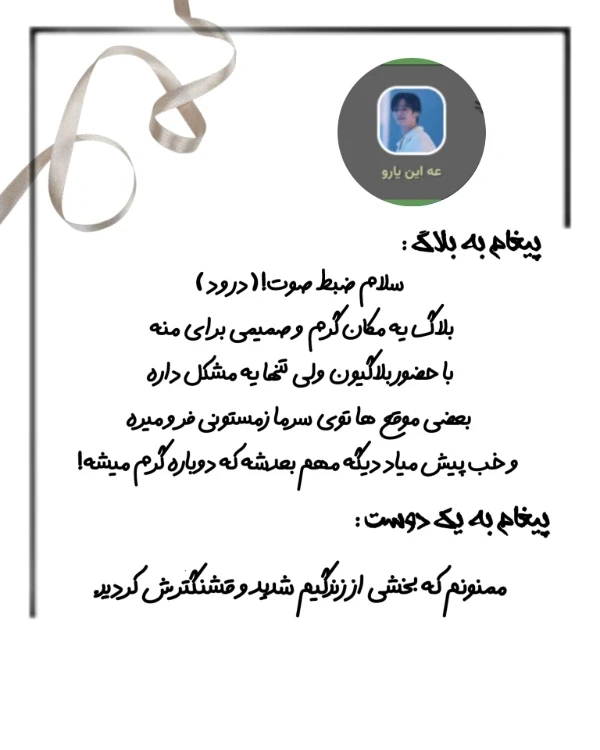 عه این یارو
پیغام به بلاگ :
سلام ضبط صوت!(درود)
بلاگ یه مکان گرم و صمیمی برای منه
با حضور بلاگیون ولی تنها یه مشکل داره
بعضی موقع ها توی سرما زمستونی فرو میره
و خب پیش میاد دیگه مهم بعدشه که دوباره گرم میشه!
پیغام به یک دوست :
ممنونم که بخشی از زندگیم شدید و قشنگترش کردید.